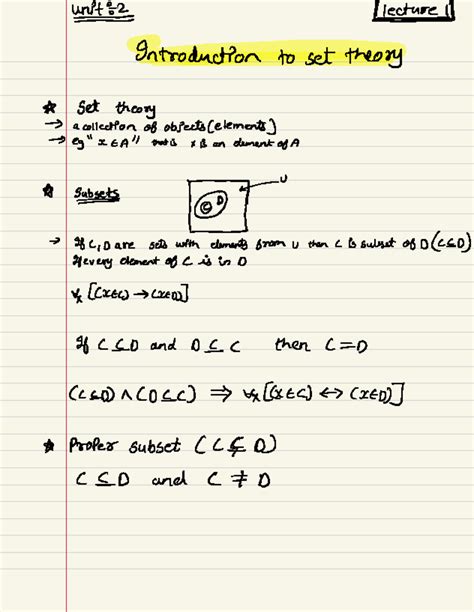 unit 2
lecture 1
Introduction to set theory
☆ Set theory
→ a collection of objects [elements]
→ eg " x ∈ A " that is x is an element of A
☆ Subsets
U
C D
→ If C, D are sets with elements from U then C is subset of D (C ⊆ D)
If every element of C is in D
∀x [(x∈C) → (x∈D)]
If C ⊆ D and D ⊆ C then C = D
(C ⊆ D) ∧ (D ⊆ C) ⇒ ∀x [(x∈C) ↔ (x∈D)]
☆ Proper subset (C ⊊ D)
C ⊆ D and C ≠ D